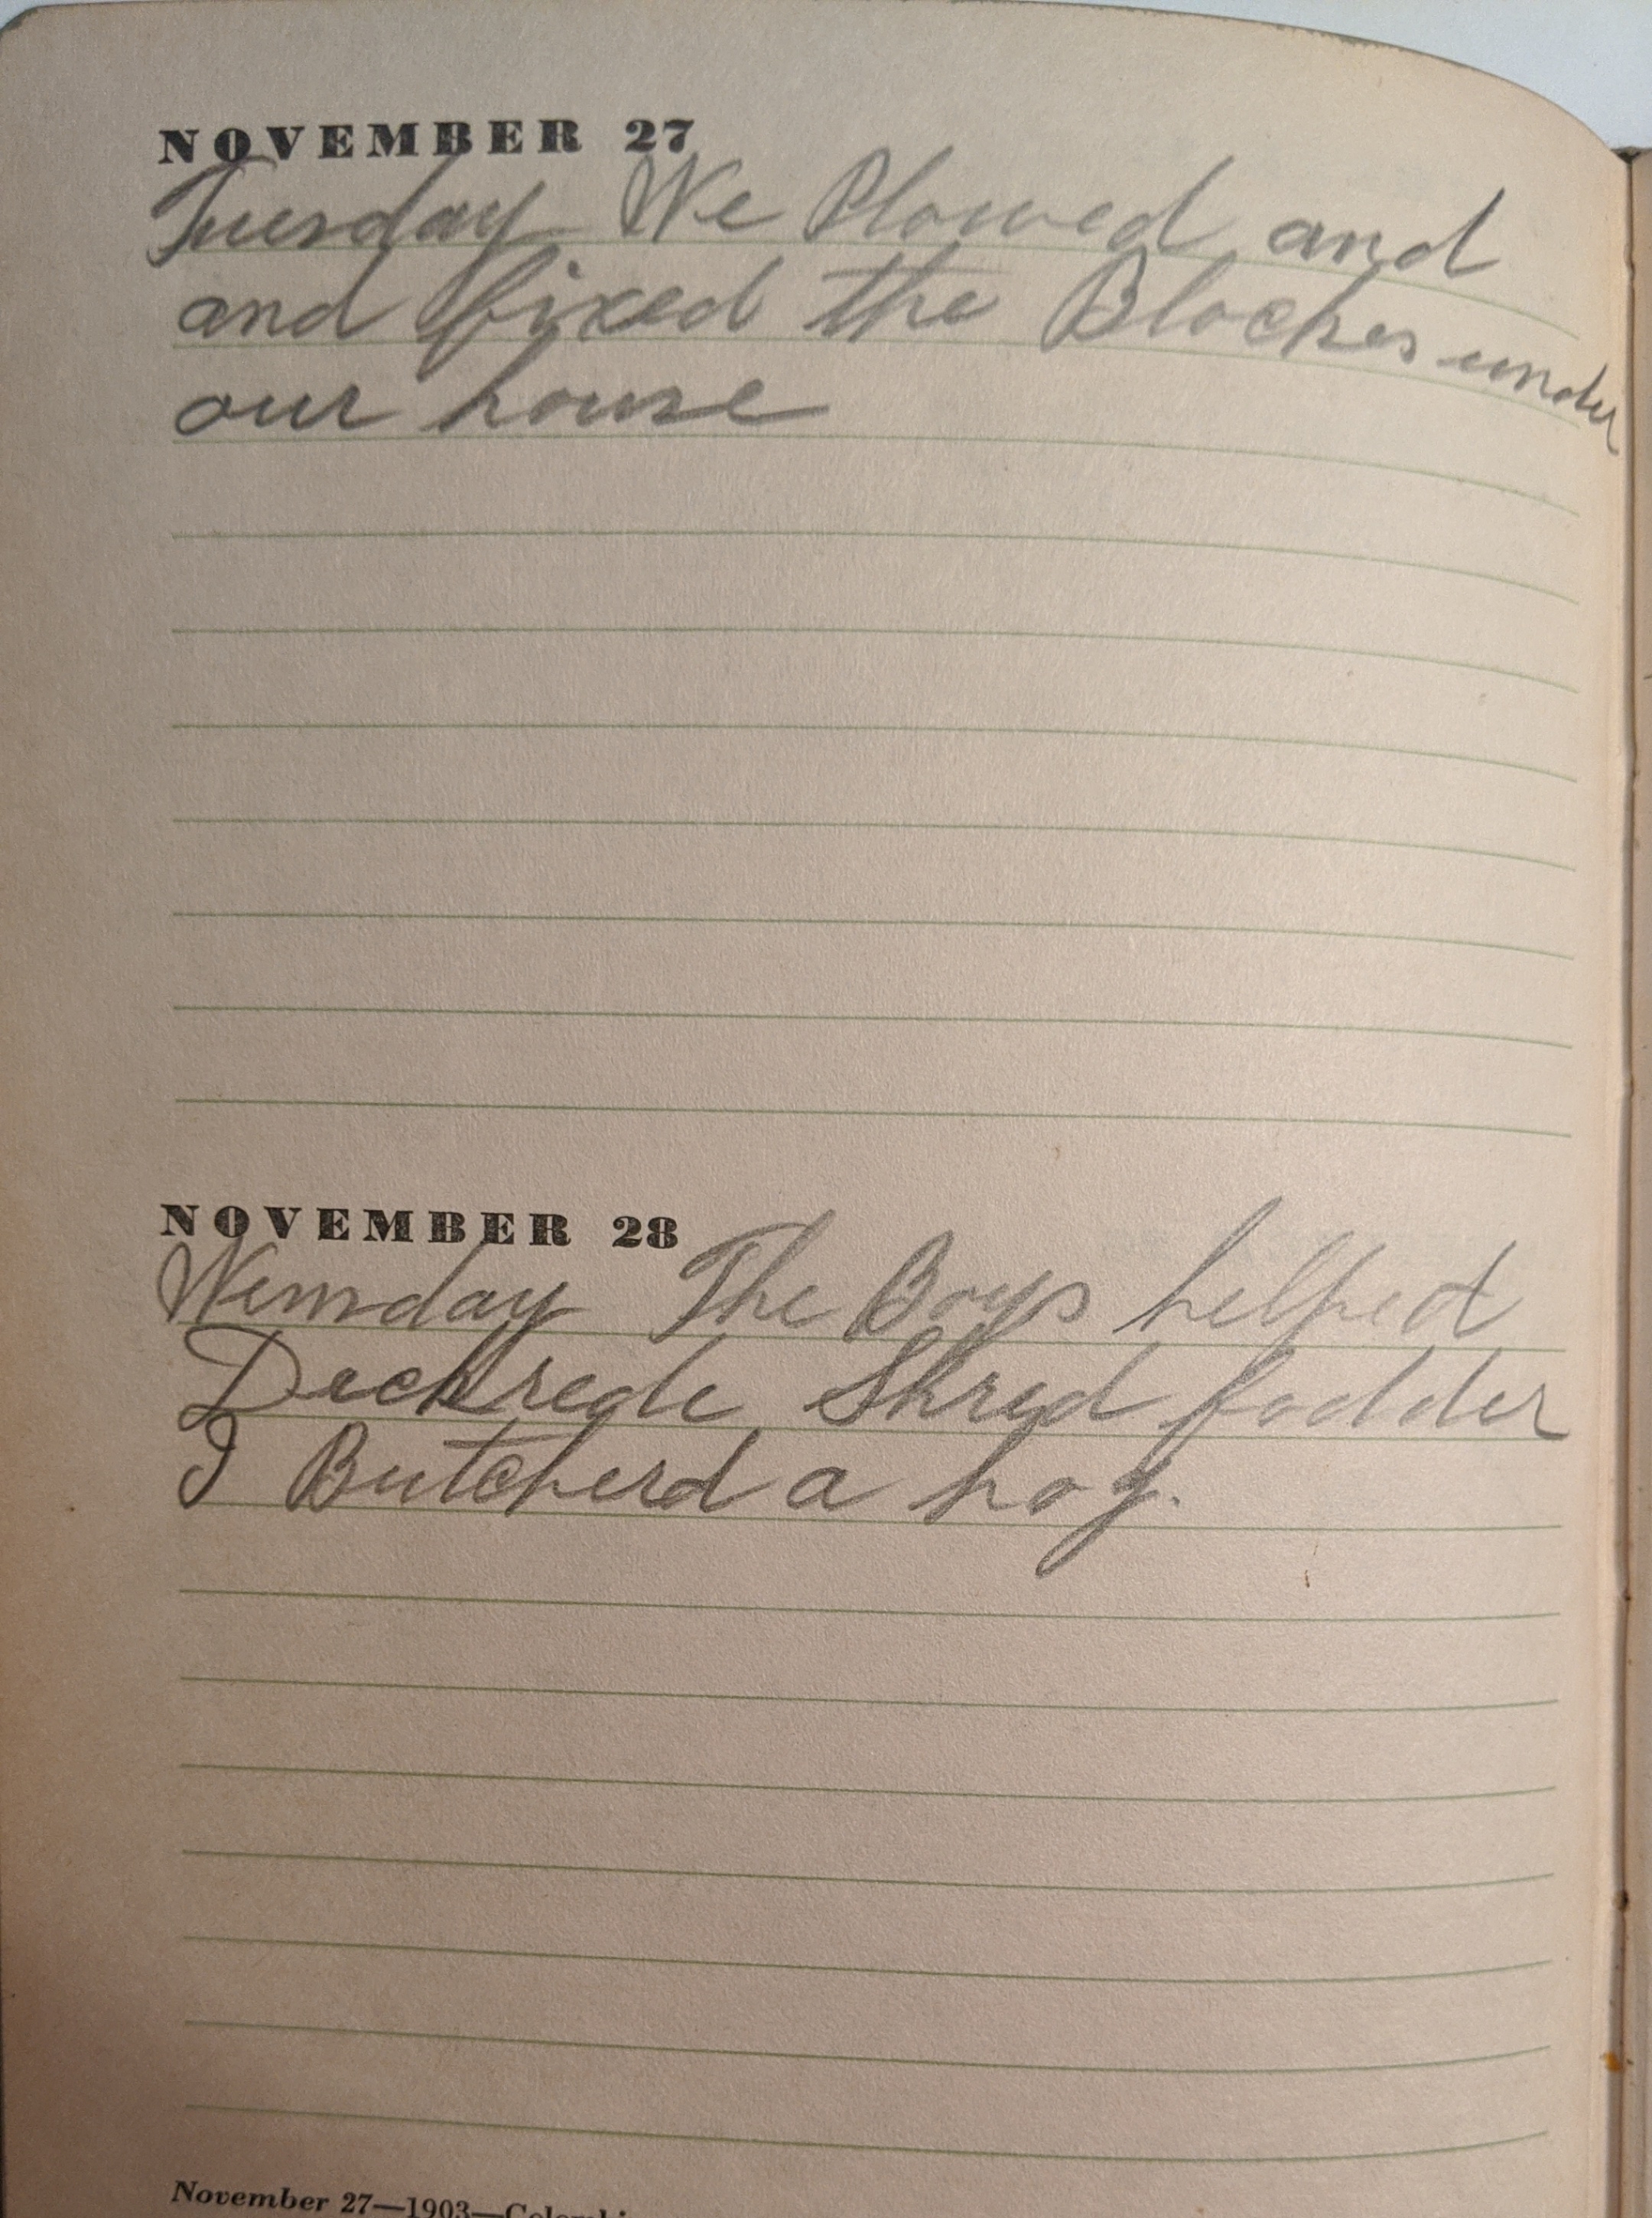 NOVEMBER 27
Tuesday We Plowed and
and fixed the Blockes under
our house
NOVEMBER 28
Wemsday The Boys helped
Shred fodder
I Butcherd a hog.
November 27—1903—Colombi